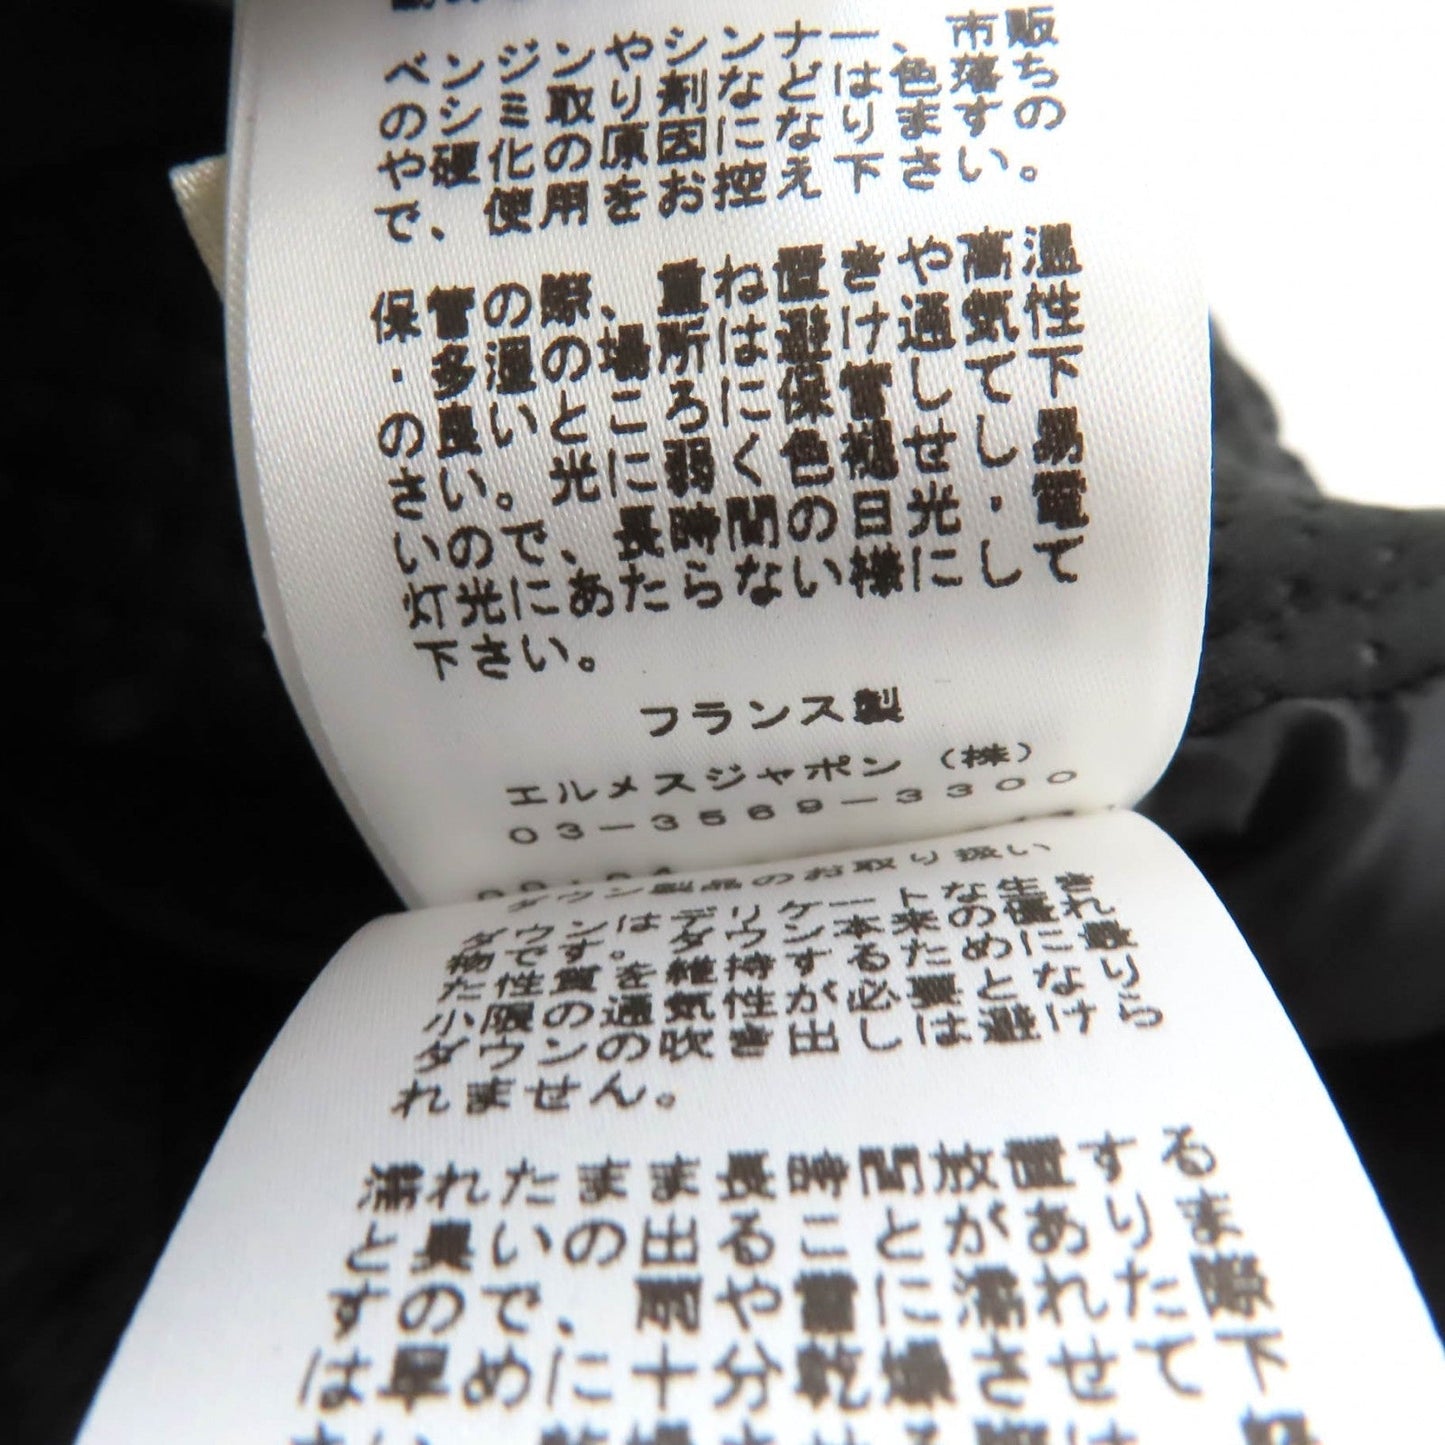 ベンジンやシンナー、市販
のシミ取り剤などは色落ち
や硬化の原因になりますの
で、使用をお控え下さい。
保管の際、重ね置きや高温
・多湿の場所は避け通気性
の良いところに保管して下
さい。光に弱く色褪せし易
いので、長時間の日光・電
灯光にあたらない様にして
下さい。
フランス製
エルメスジャポン（株）
03-3569-3300
ダウン製品のお取り扱い
ダウンはデリケートな生き
物です。ダウン本来の優れ
た性質を維持するために最
小限の通気性が必要となり
ダウンの吹き出しは避けら
れません。
濡れたまま長時間放置する
と臭いの出ることがありま
すので、雨や雪に濡れた際
は早めに十分乾燥させて下